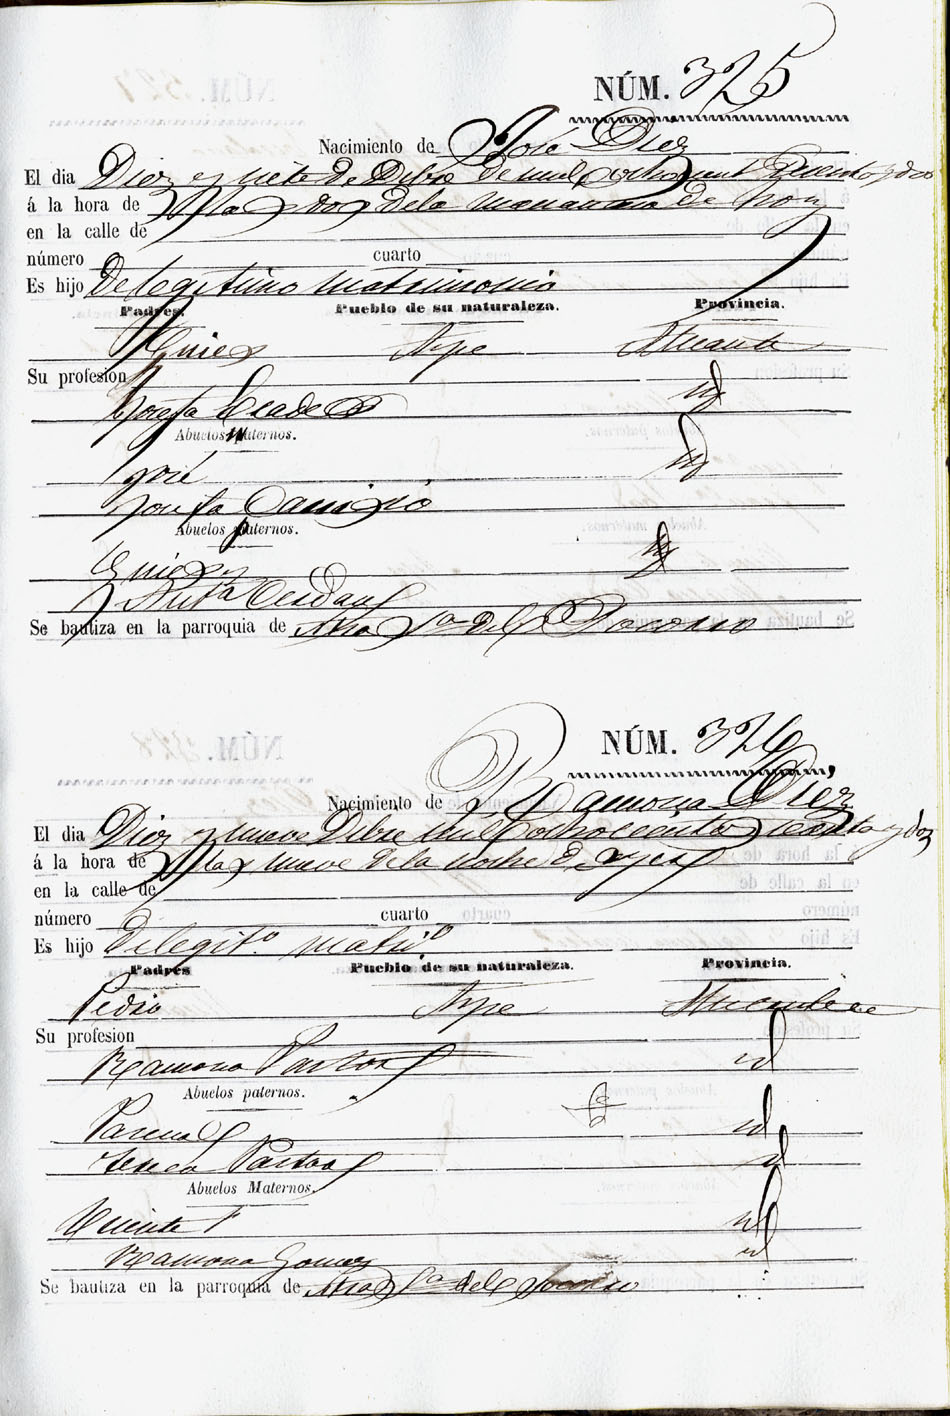 NÚM. 325
Nacimiento de José Diez
El dia Diez y siete de Dbre de mil ochocient sesenta y dos
á la hora de A las dos de la manana de hoy
en la calle de
número cuarto
Es hijo De legitimo matrimonio
Padres. Pueblo de su naturaleza. Provincia.
Gines Aspe Alicante
Su profesion
Josefa id
Abuelos paternos.
José id
Josefa
Abuelos paternos.
Gines
Se bautiza en la parroquia de Ntra Sra del Socorro
NÚM. 326
Nacimiento de Ramona Diez
El dia Diez y nueve Dbre mil ochocientos sesenta y dos
á la hora de A las nueve de la noche de ayer
en la calle de
número cuarto
Es hijo De legito. matrio
Padres Pueblo de su naturaleza. Provincia.
Pedro Aspe Alicante
Su profesion
Ramona Pastor id
Abuelos paternos.
Pascual id
Teresa Pastor id
Abuelos Maternos.
Vicente id
Ramona Gomez id
Se bautiza en la parroquia de Ntra Sra del Socorro